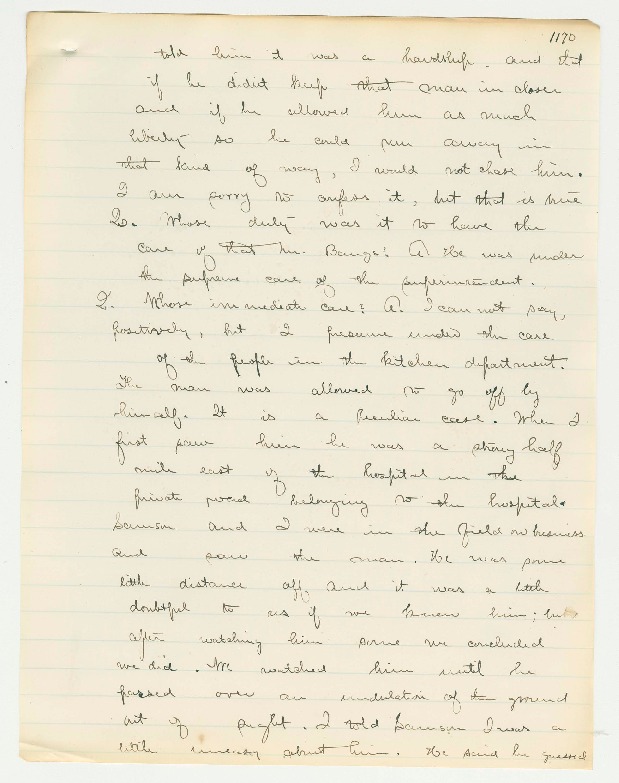 1170
told him it was a hardship. and that
if he didnt keep that man in closer
and if he allowed him as much
liberty so he could run away in
that kind of way, I would not chase him.
I am sorry to confess it, but that is true
Q. Whose duty was it to have the
care of that Mr. Bangs? A He was under
the supreme care of the superintendent.
Q. Whose immediate care? A. I can not say,
positively, but I presume under the care
of the people in the kitchen department.
The man was allowed to go off by
himself. It is a peculiar case. When I
first saw him he was a strong half
mile east of the hospital in the
private road belonging to the hospital.
Samson and I were in the field on business
and saw the man. He was some
little distance off and it was a little
doubtful to us if we knew him; but
after watching him some we concluded
we did. We watched him until he
passed over an undulation of the ground
out of sight. I told Samson I was a
little uneasy about him. He said he guessed